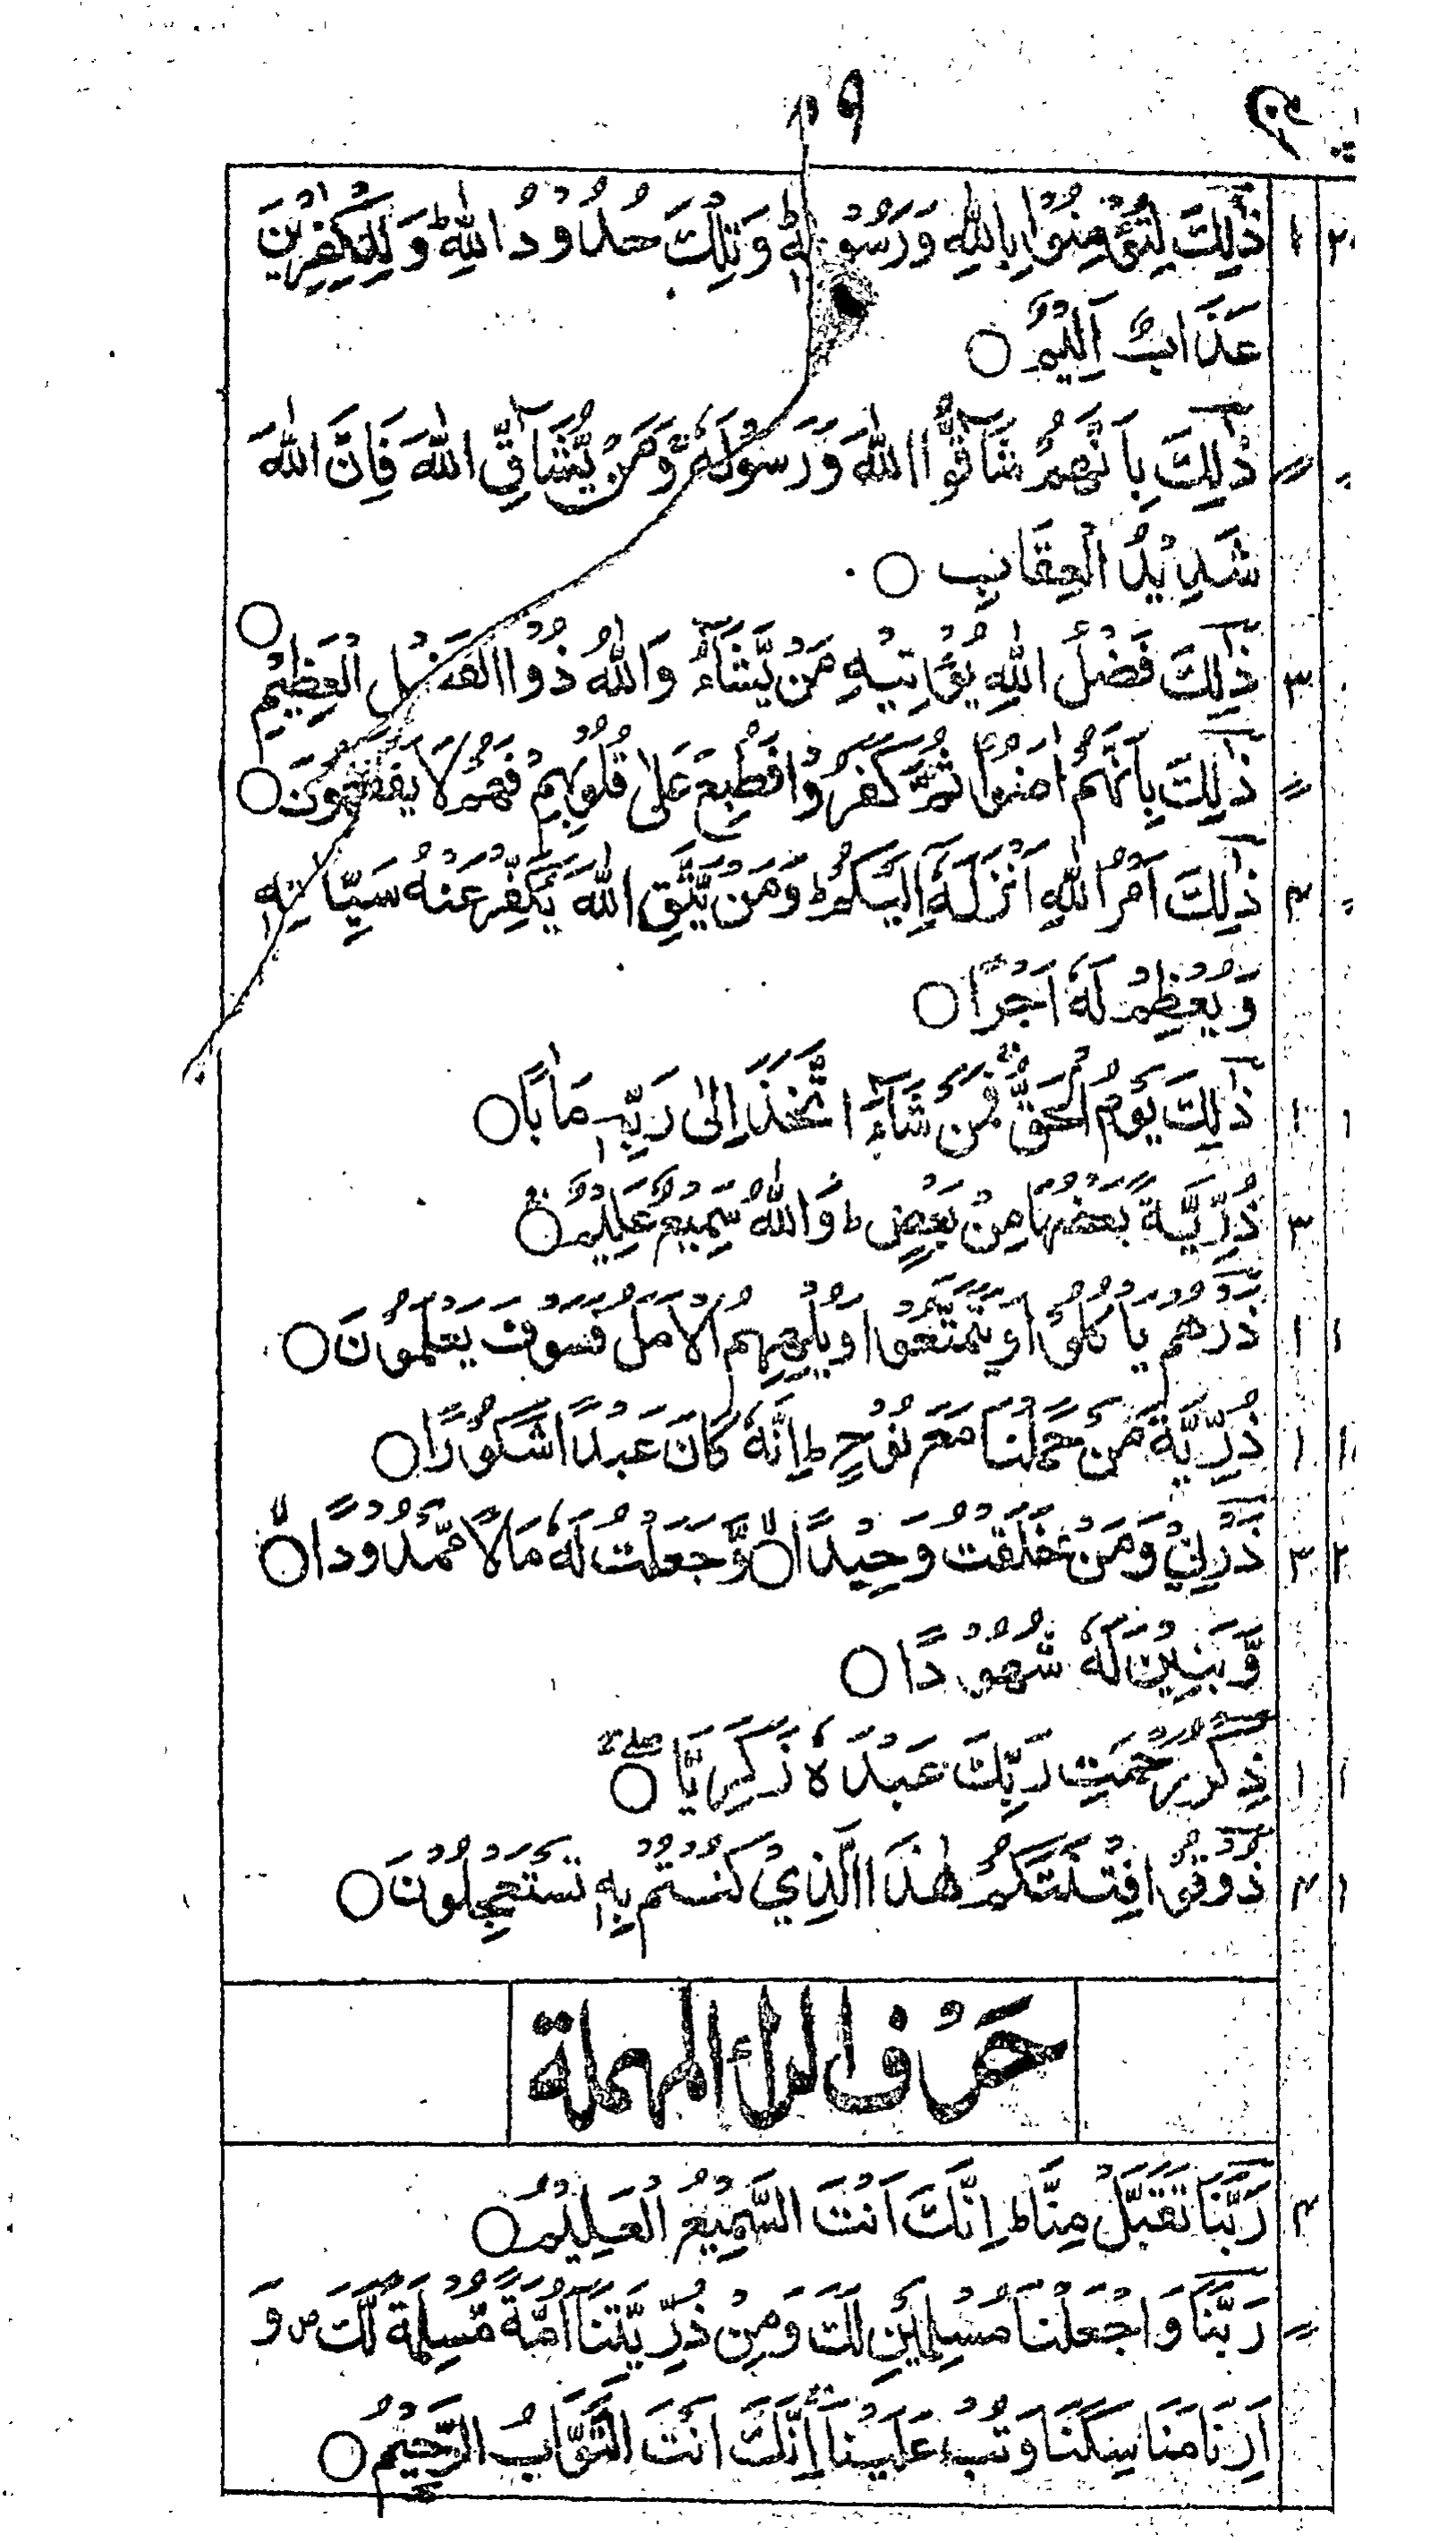 ذٰلِكَ لِتُؤْمِنُوْا بِاللّٰهِ وَرَسُوْلِهٖ ؕ وَتِلْكَ حُدُوْدُ اللّٰهِ ؕ وَلِلْكٰفِرِيْنَ
عَذَابٌ اَلِيْمٌ ○
ذٰلِكَ بِاَنَّهُمْ شَآقُّوا اللّٰهَ وَرَسُوْلَهٗ ۚ وَمَنْ يُّشَآقِّ اللّٰهَ فَاِنَّ اللّٰهَ
شَدِيْدُ الْعِقَابِ ○
ذٰلِكَ فَضْلُ اللّٰهِ يُؤْتِيْهِ مَنْ يَّشَآءُ ؕ وَاللّٰهُ ذُوا الْفَضْلِ الْعَظِيْمِ ○ ٣
ذٰلِكَ بِاَنَّهُمْ اٰمَنُوْا ثُمَّ كَفَرُوْا فَطُبِعَ عَلٰى قُلُوْبِهِمْ فَهُمْ لَا يَفْقَهُوْنَ ○
ذٰلِكَ اَمْرُ اللّٰهِ اَنْزَلَهٗٓ اِلَيْكُمْ ؕ وَمَنْ يَّتَّقِ اللّٰهَ يُكَفِّرْ عَنْهُ سَيِّاٰتِهٖ
وَيُعْظِمْ لَهٗٓ اَجْرًا ○
ذٰلِكَ يَوْمُ الْحَقُّ ۚ فَمَنْ شَآءَ اتَّخَذَ اِلٰى رَبِّهٖ مَاٰبًا ○ ١
ذُرِّيَّةً ۢ بَعْضُهَا مِنْ بَعْضٍ ؕ وَاللّٰهُ سَمِيْعٌ عَلِيْمٌ ○ ٣
ذَرْهُمْ يَاْكُلُوْا وَيَتَمَتَّعُوْا وَيُلْهِهِمُ الْاَمَلُ فَسَوْفَ يَعْلَمُوْنَ ○ ١ ١
ذُرِّيَّةَ مَنْ حَمَلْنَا مَعَ نُوْحٍ ؕ اِنَّهٗ كَانَ عَبْدًا شَكُوْرًا ○ ١
ذَرْنِيْ وَمَنْ خَلَقْتُ وَحِيْدًا ○ وَّجَعَلْتُ لَهٗ مَالًا مَّمْدُوْدًا ○ ٣ ٢
وَّبَنِيْنَ لَهٗ شُهُوْدًا ○
ذِكْرُ رَحْمَتِ رَبِّكَ عَبْدَهٗ زَكَرِيَّا ○ ١
ذُوْقُوْا فِتْنَتَكُمْ هٰذَا الَّذِيْ كُنْتُمْ بِهٖ تَسْتَعْجِلُوْنَ ○ ١
حَرْفُ الراء المهملة
رَبَّنَا تَقَبَّلْ مِنَّا ؕ اِنَّكَ اَنْتَ السَّمِيْعُ الْعَلِيْمُ ○
رَبَّنَا وَاجْعَلْنَا مُسْلِمَيْنِ لَكَ وَمِنْ ذُرِّيَّتِنَآ اُمَّةً مُّسْلِمَةً لَّكَ ص وَ
اَرِنَا مَنَاسِكَنَا وَتُبْ عَلَيْنَا ۚ اِنَّكَ اَنْتَ التَّوَّابُ الرَّحِيْمُ ○